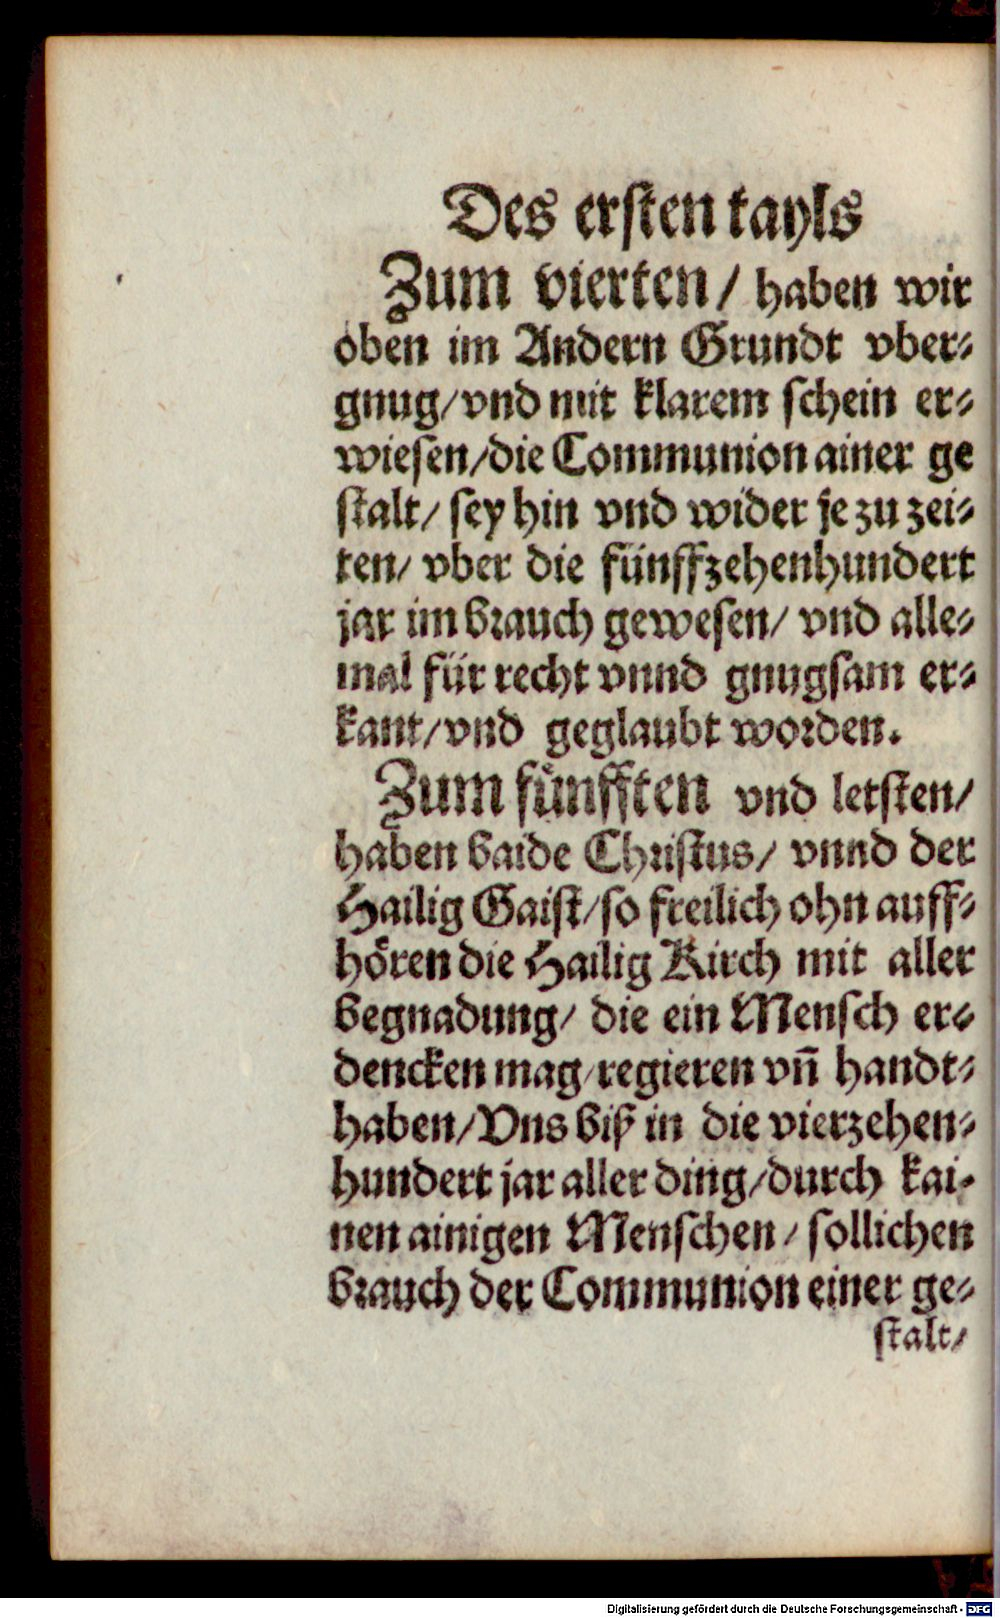 Des ersten tayls
Zum vierten/ haben wir
oben im Andern Grundt vber-
gnug/vnd mit klarem schein er-
wiesen/die Communion ainer ge
stalt/ sey hin vnd wider je zu zei-
ten/ vber die fünffzehenhundert
jar im brauch gewesen/ vnd alle-
mal für recht vnnd gnugsam er-
kant/vnd geglaubt worden.
Zum fünfften vnd letsten/
haben baide Christus/ vnnd der
Hailig Gaist/so freilich ohn auff-
hören die Hailig Kirch mit aller
begnadung/ die ein Mensch er-
dencken mag/regieren vn̄ handt-
haben/Vns biß in die vierzehen-
hundert jar aller ding/durch kai-
nen ainigen Menschen/ sollichen
brauch der Communion einer ge-
stalt/
Digitalisierung gefördert durch die Deutsche Forschungsgemeinschaft - DFG